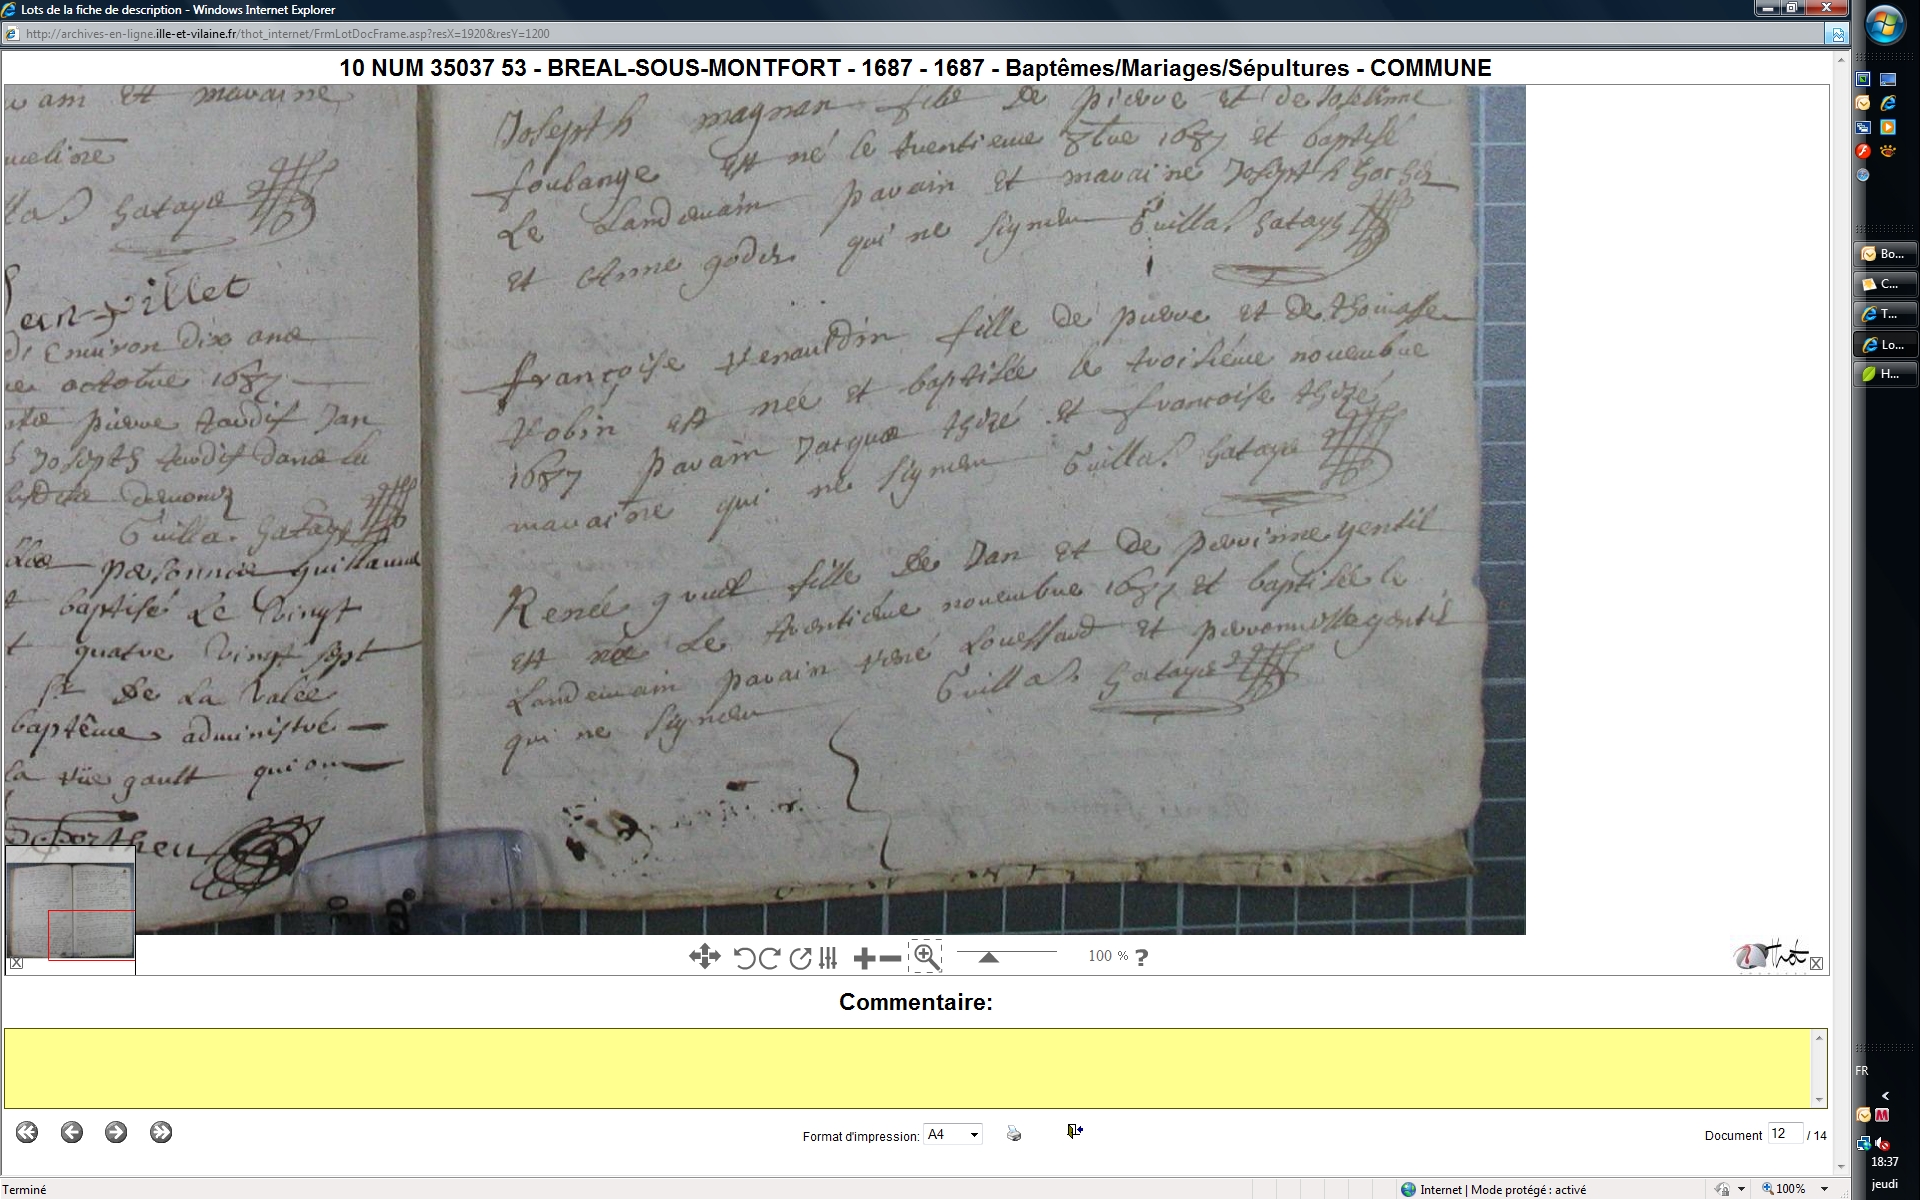 Lots de la fiche de description - Windows Internet Explorer
http://archives-en-ligne.ille-et-vilaine.fr/thot_internet/FrmLotDocFrame.asp?resX=1920&resY=1200
10 NUM 35037 53 - BREAL-SOUS-MONTFORT - 1687 - 1687 - Baptêmes/Mariages/Sépultures - COMMUNE
et maraine
Guilla. Gataye
Jan
di Environ dix ans
octobre 1687
pierre tardif Jan
Joseph tardif dans la
Guilla. Gataye
personnes guillaume
baptisé Le Vingt
quatre Vingt sept
Sr De La Valée
baptême administré
la gault qui on
Joseph magnan fils de pierre et de Joselinne
foulange est né le trentieme 8bre 1687 et baptisé
Le Landemain parain et maraine Joseph
et Anne godin qui ne signen Guilla. Gataye
françoise renauldin fille de pierre et de thomasse
robin est née et baptisée le troisième novembre
1687 parain Jacque thizé et francoise thizé
maraine qui ne signen Guilla. Gataye
Renée gruel fille de Jan et de perrinne gentil
est née Le trentieme novembre 1687 et baptisée le
Landemain parain rené Louessard et perronnelle gentil
qui ne signen Guilla. Gataye
100 % ?
Thot
Commentaire:
Format d'impression: A4
Document 12 / 14
Terminé
Internet | Mode protégé : activé
100%
Bo...
C...
T...
Lo...
H...
FR
18:37
jeudi